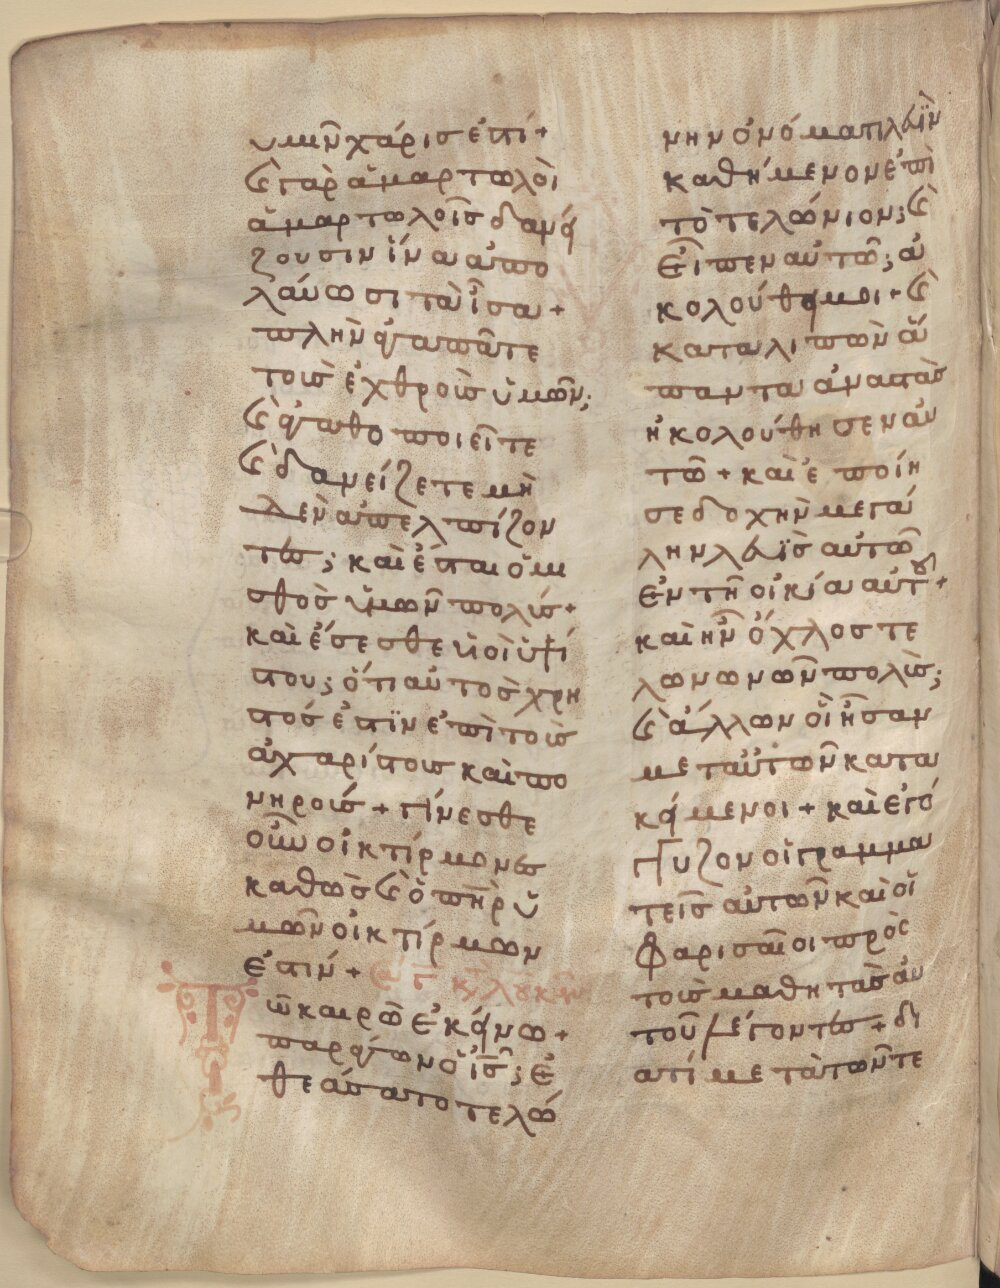 ὑμῖν χάρισ ἐστί +
ϗ γὰρ ἁμαρτωλοὶ
ἁμαρτωλοῖσ δανεί
ζουσιν ἵνα ἀπο
λάβωσι τὰ ἶσα +
πλὴν ἀγαπᾶτε
τοὺσ ἐχθροὺσ ὑμῶν;
ϗ ἀγαθοποιεῖτε
ϗ δανείζετε μη
δὲν ἀπελπίζον
τεσ; καὶ ἔσται ὁ μι
σθὸσ ὑμῶν πολύσ +
καὶ ἔσεσθε υἱοὶ ὑψί
στου; ὅτι αὐτὸσ χρη
στόσ ἐστϊν ἐπὶ τοὺσ
ἀχαρίστουσ καὶ πο
νηρούσ + γίνεσθε
οὖν οἰκτίρμονεσ
καθὼσ ϗ ὁ πη̅ρ ὑ
μῶν οἰκτίρμων
ἐστίν +
Τῶ καιρῶ ἐκείνω +
παράγων ὁ ισ̅; ἐ
θεάσατο τελώ
νην ὀνόματι λευΐν
καθήμενον ἐπὶ
τὸ τελώνιον; ϗ
εἶπεν αὐτῶ; ἀ
κολούθει μοι + ϗ
καταλιπὼν ἅ
παντα ἀναστὰσ
ἠκολούθησεν αὐ
τῶ + καὶ ἐποίη
σε δοχὴν μεγά
λην λευῒσ αὐτῶ
ἐν τῆ οἰκία αὐτοῦ +
καὶ ἦν ὄχλοσ τε
λωνων ῶν πολὺσ;
ϗ ἄλλων οἳ ἦσαν
μετ αὐτῶν κατα
κείμενοι + καὶ ἐγό
γγυζον οἱ γραμμα
τεῖσ αὐτῶν καὶ οἱ
φαρισαῖοι πρὸς
τοὺσ μαθητὰσ αὐ
τοῦ λέγοντεσ + δι
ατί μετὰ τῶν τε